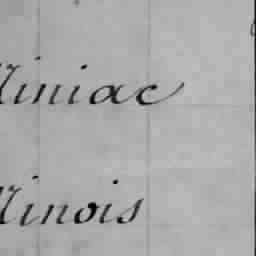 Miniac
Minois